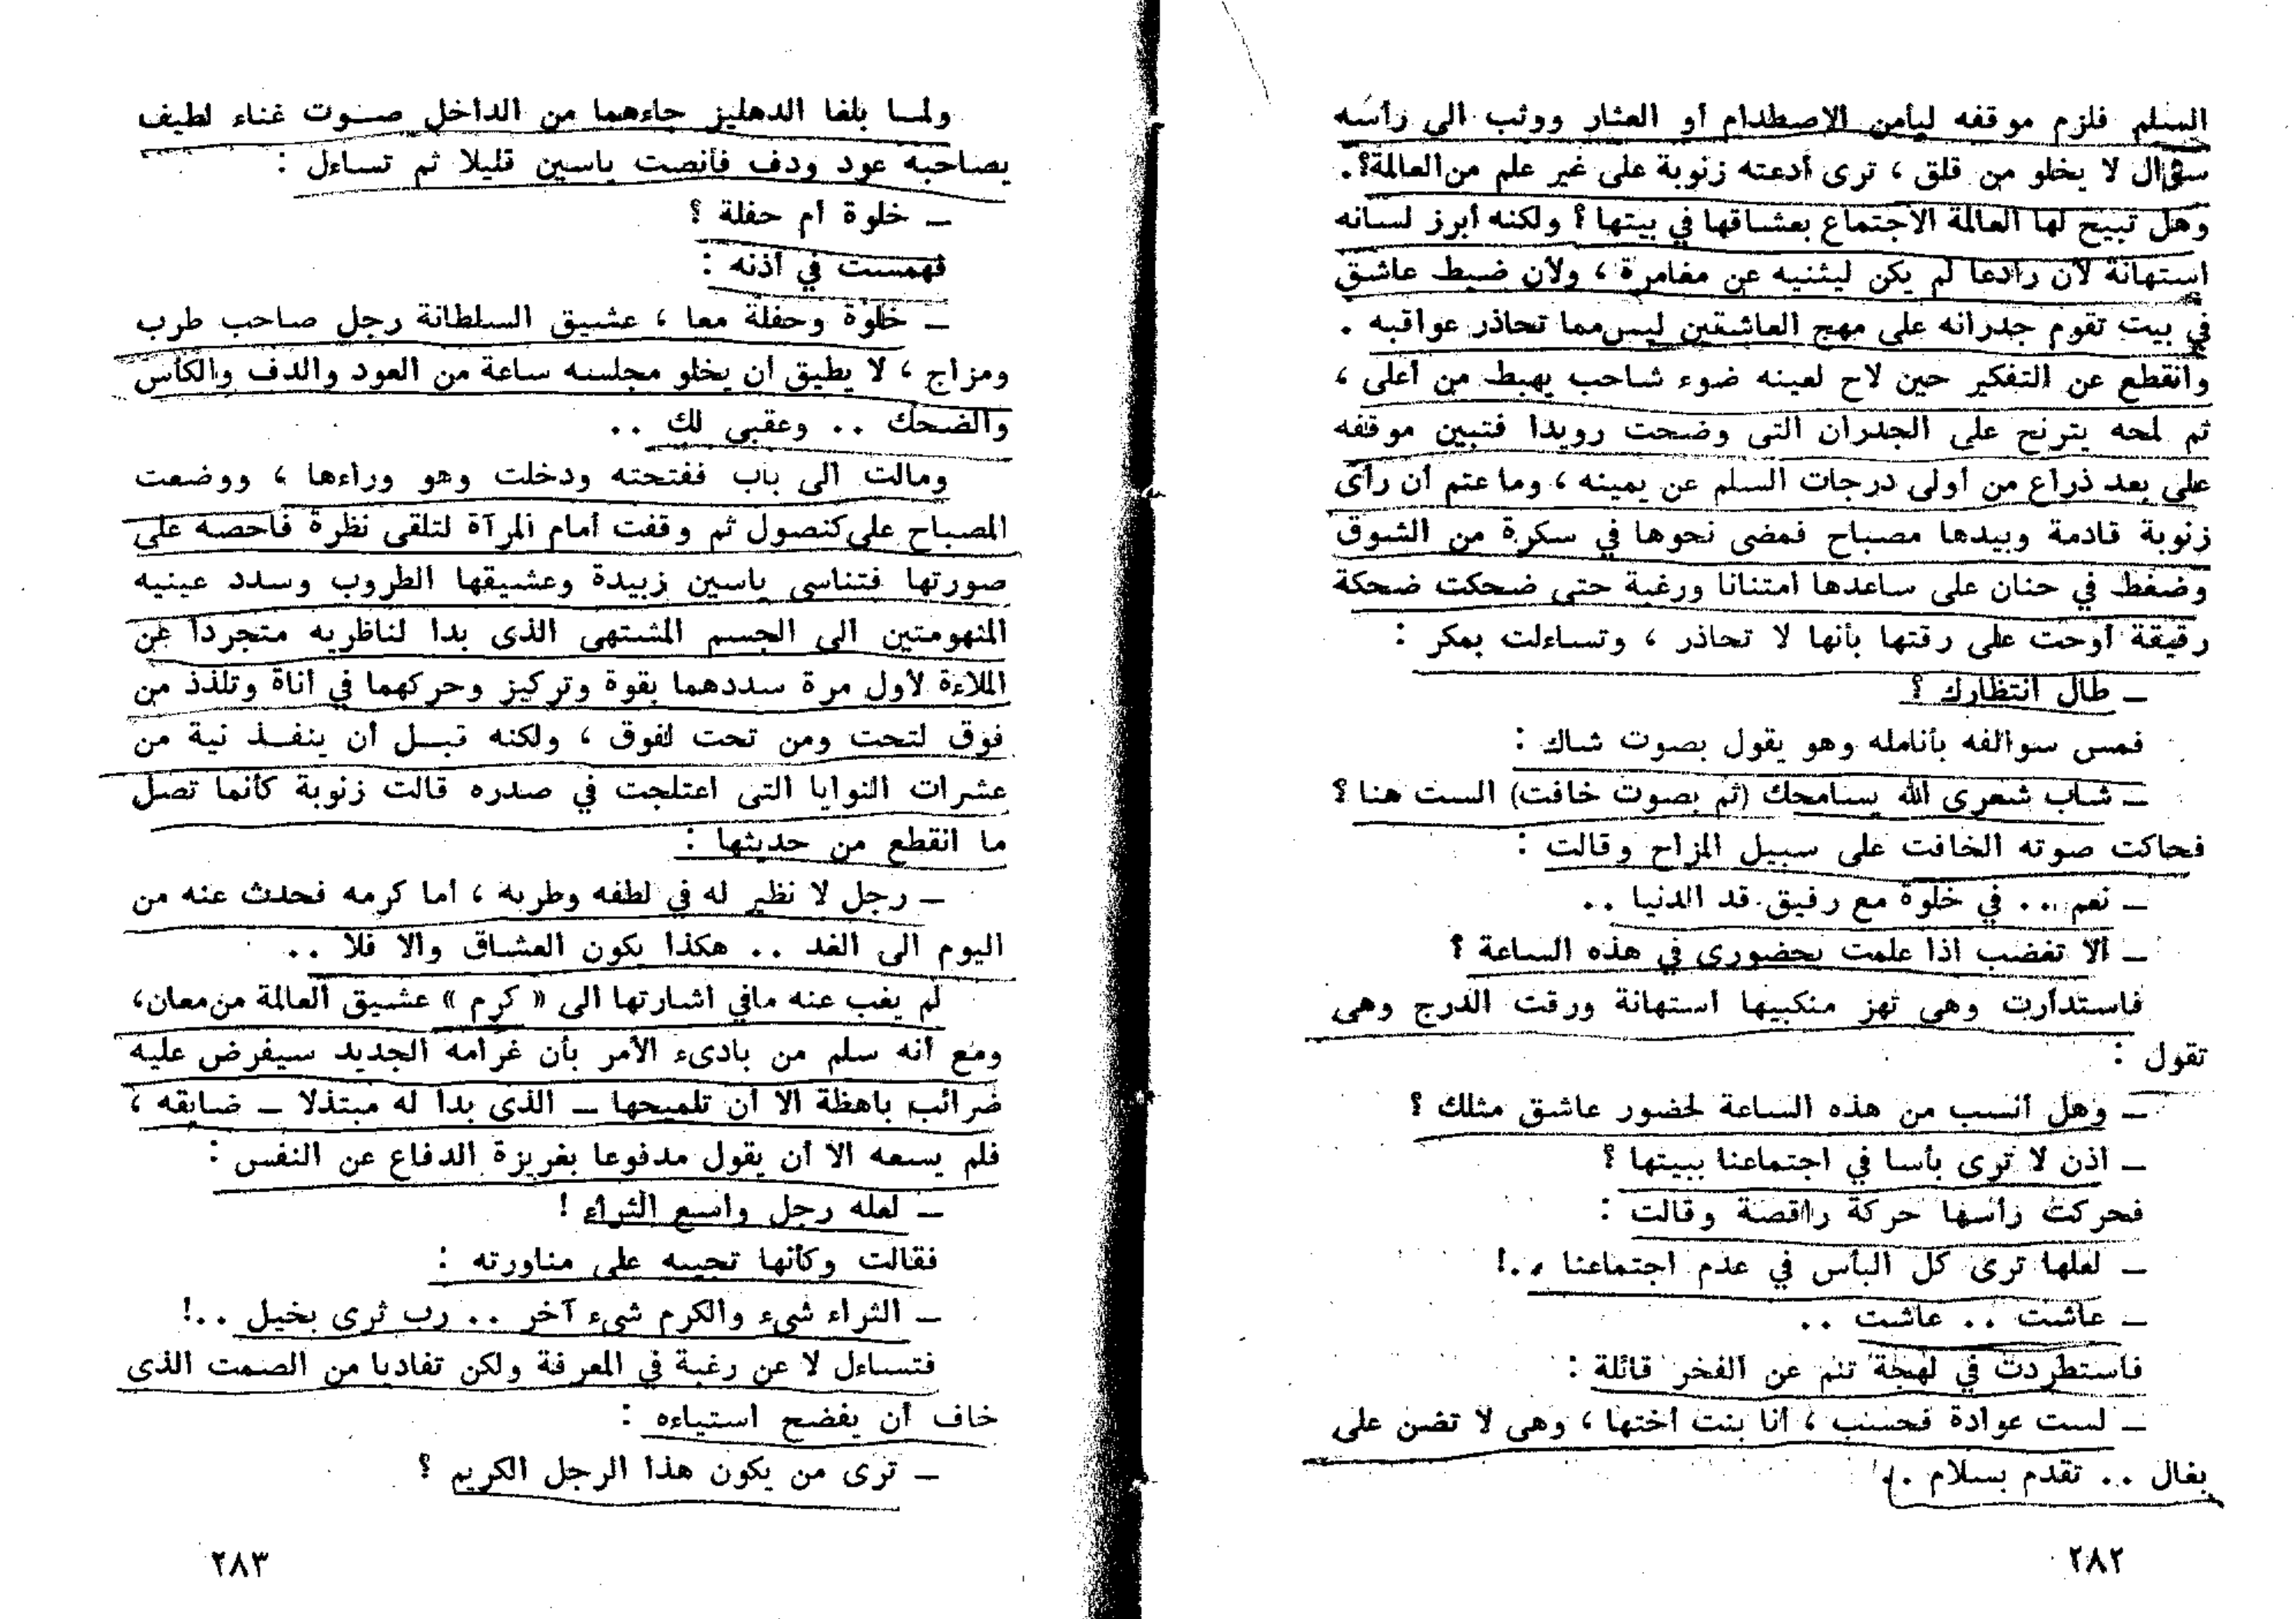 السلم فلزم موقفه ليأمن الاصطدام أو العثار ووثب الى رأسه
سؤال لا يخلو من قلق ، ترى أدعته زنوبة على غير علم من العالمة؟.
وهل تبيح لها العالمة الاجتماع بعشاقها في بيتها ؟ ولكنه أبرز لسانه
استهانة لأن رادعا لم يكن ليثنيه عن مغامرة ، ولأن ضبط عاشق
في بيت تقوم جدرانه على مهج العاشقين ليس مما تحاذر عواقبه .
وانقطع عن التفكير حين لاح لعينه ضوء شاحب يهبط من أعلى ،
ثم لمحه يترنح على الجدران التى وضحت رويدا فتبين موقفه
على بعد ذراع من أولى درجات السلم عن يمينه ، وما عتم أن رأى
زنوبة قادمة وبيدها مصباح فمضى نحوها في سكرة من الشوق
وضغط في حنان على ساعدها امتنانا ورغبة حتى ضحكت ضحكة
رقيقة أوحت على رقتها بأنها لا تحاذر ، وتساءلت بمكر :
ـ طال انتظارك ؟
فمس سوالفه بأنامله وهو يقول بصوت شاك :
ـ شاب شعرى الله يسامحك (ثم بصوت خافت) الست هنا ؟
فحاكت صوته الخافت على سبيل المزاح وقالت :
ـ نعم .. في خلوة مع رفيق قد الدنيا ..
ـ ألا تغضب اذا علمت بحضورى في هذه الساعة ؟
فاستدارت وهى تهز منكبيها استهانة ورقت الدرج وهى
تقول :
ـ وهل أنسب من هذه الساعة لحضور عاشق مثلك ؟
ـ اذن لا ترى بأسا في اجتماعنا ببيتها ؟
فحركت رأسها حركة راقصة وقالت :
ـ لعلها ترى كل البأس في عدم اجتماعنا ..!
ـ عاشت .. عاشت ..
فاستطردت في لهجة تنم عن الفخر قائلة :
ـ لست عوادة فحسب ، أنا بنت أختها ، وهى لا تضن على
بغال .. تقدم بسلام ..
٢٨٢
ولمـا بلغا الدهليز جاءهما من الداخل صـوت غناء لطيف
يصاحبه عود ودف فأنصت ياسين قليلا ثم تساءل :
ـ خلوة أم حفلة ؟
فهمست في أذنه :
ـ خلوة وحفلة معا ، عشيق السلطانة رجل صاحب طرب
ومزاج ، لا يطيق أن يخلو مجلسه ساعة من العود والدف والكأس
والضحك .. وعقبى لك ..
ومالت الى باب ففتحته ودخلت وهو وراءها ، ووضعت
المصباح على كنصول ثم وقفت أمام المرآة لتلقى نظرة فاحصة على
صورتها فتناسى ياسين زبيدة وعشيقها الطروب وسدد عينيه
المنهومتين الى الجسم المشتهى الذى بدا لناظريه متجردا عن
الملاءة لأول مرة سددهما بقوة وتركيز وحركهما في أناة وتلذذ من
فوق لتحت ومن تحت لفوق ، ولكنه قبـل أن ينفـذ نية من
عشرات النوايا التى اعتلجت في صدره قالت زنوبة كأنما تصل
ما انقطع من حديثها :
ـ رجل لا نظير له في لطفه وطربه ، أما كرمه فحدث عنه من
اليوم الى الغد .. هكذا يكون العشاق والا فلا ..
لم يغب عنه مافي اشارتها الى « كرم » عشيق العالمة من معان،
ومع أنه سلم من بادىء الأمر بأن غرامه الجديد سيفرض عليه
ضرائب باهظة الا أن تلميحها ـ الذى بدا له مبتذلا ـ ضايقه ،
فلم يسعه الا أن يقول مدفوعا بغريزة الدفاع عن النفس :
ـ لعله رجل واسع الثراء !
فقالت وكأنها تجيبه على مناورته :
ـ الثراء شىء والكرم شىء آخر .. رب ثرى بخيل ..!
فتساءل لا عن رغبة في المعرفة ولكن تفاديا من الصمت الذى
خاف أن يفضح استياءه :
ـ ترى من يكون هذا الرجل الكريم ؟
٢٨٣